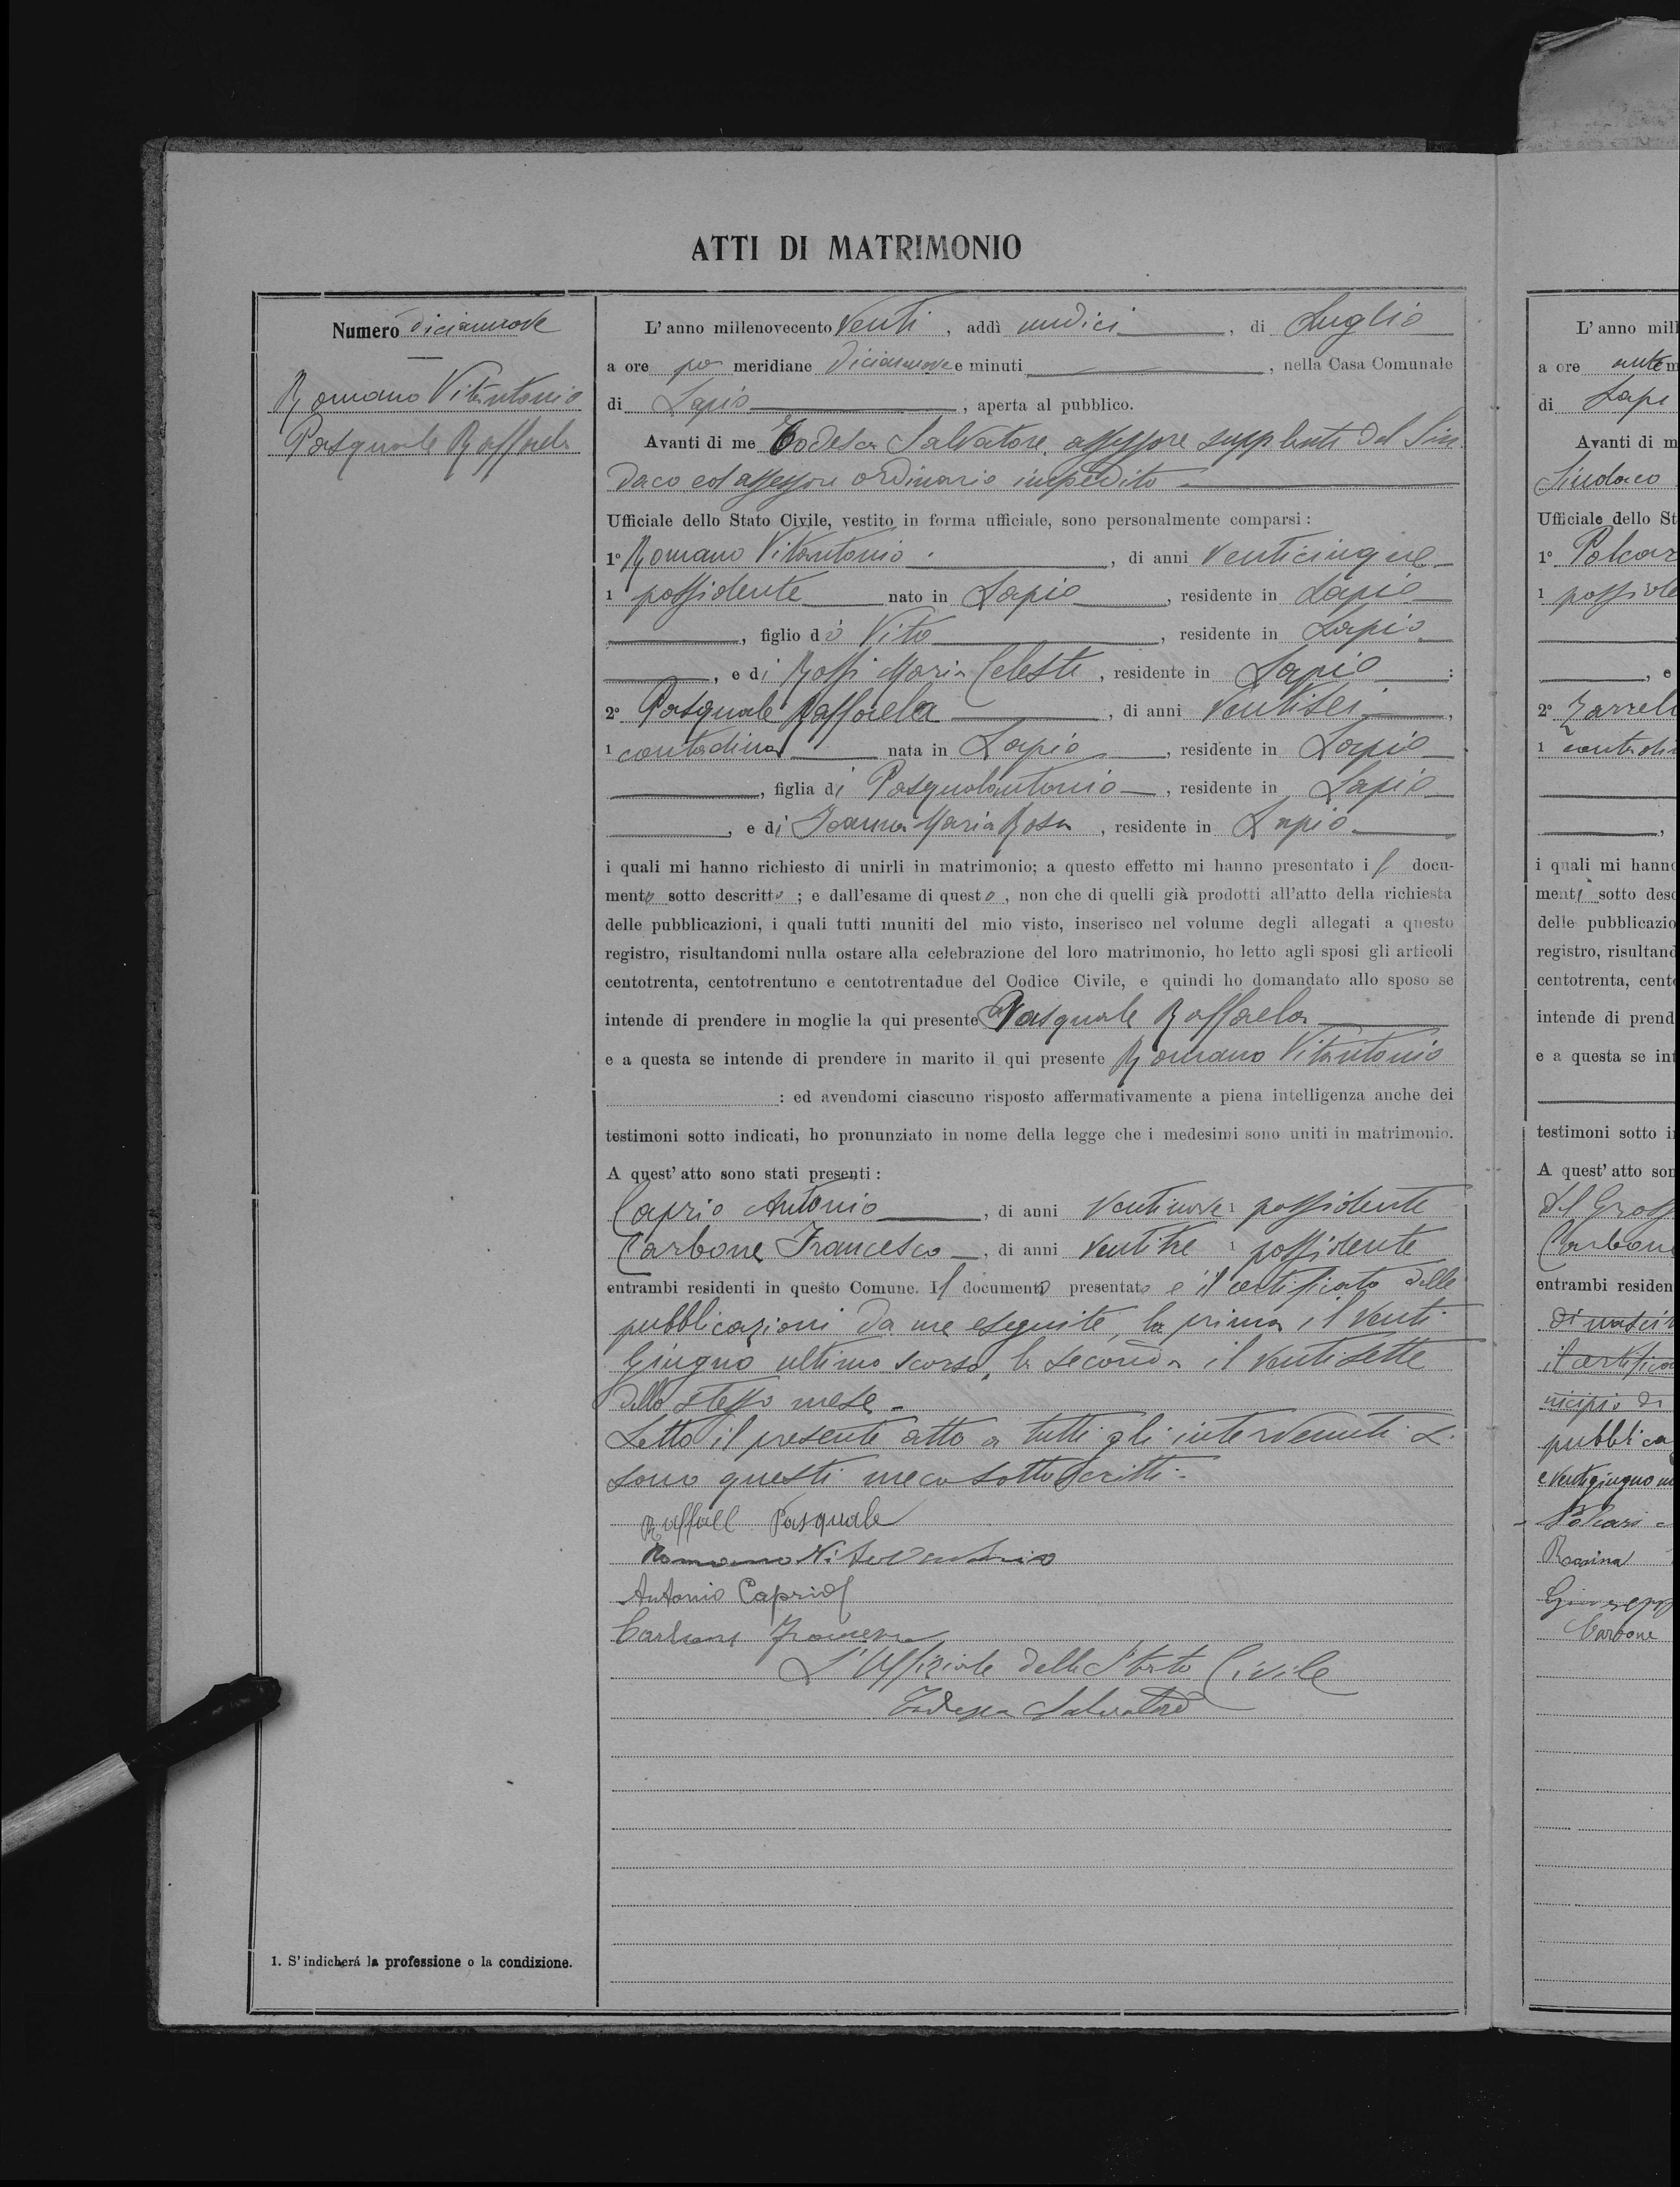 ATTI DI MATRIMONIO
Numero diciannove
Romano Vitantonio
Pasquale Raffaela
L'anno millenovecento Venti, addì undici, di Luglio
a ore po meridiane diciannove e minuti, nella Casa Comunale
di Lapio, aperta al pubblico.
Avanti di me Todesca Salvatore, assessore supplente del Sin
daco ed assessore ordinario impedito
Ufficiale dello Stato Civile, vestito in forma ufficiale, sono personalmente comparsi:
1º Romano Vitantonio, di anni Venticinque
1 possidente nato in Lapio, residente in Lapio
, figlio di Vito, residente in Lapio
, e di Rossi Maria Celeste, residente in Lapio:
2º Pasquale Raffaela, di anni Ventisei,
1 contadina nata in Lapio, residente in Lapio
, figlia di Pasqualantonio, residente in Lapio
, e di Ioanna Maria Rosa, residente in Lapio
i quali mi hanno richiesto di unirli in matrimonio; a questo effetto mi hanno presentato il docu-
mento sotto descritto; e dall'esame di questo, non che di quelli già prodotti all'atto della richiesta
delle pubblicazioni, i quali tutti muniti del mio visto, inserisco nel volume degli allegati a questo
registro, risultandomi nulla ostare alla celebrazione del loro matrimonio, ho letto agli sposi gli articoli
centotrenta, centotrentuno e centotrentadue del Codice Civile, e quindi ho domandato allo sposo se
intende di prendere in moglie la qui presente Pasquale Raffaela
e a questa se intende di prendere in marito il qui presente Romano Vitantonio
: ed avendomi ciascuno risposto affermativamente a piena intelligenza anche dei
testimoni sotto indicati, ho pronunziato in nome della legge che i medesimi sono uniti in matrimonio.
A quest'atto sono stati presenti:
Caprio Antonio, di anni Ventinove 1 possidente
Carbone Francesco, di anni Ventitre 1 possidente
entrambi residenti in questo Comune. Il documento presentato è il certificato delle
pubblicazioni da me eseguite, la prima il Venti
Giugno ultimo scorso, la seconda il Ventisette
dello stesso mese.
Letto il presente atto a tutti gli intervenuti si
sono questi meco sottoscritti:
Raffaell Pasquale
Romano Vitovantonio
Antonio Caprio
Carbone Francesco
L'Uffiziale dello Stato Civile
Todesca Salvatore
1. S'indicherá la professione o la condizione.
L'anno mill
a ore ante m
di Lapi
Avanti di m
Sindaco
Ufficiale dello St
1º Polcar
1 posside
, e
2º Zarrell
1 contadi
i quali mi hanno
menti sotto desc
delle pubblicazio
registro, risultand
centotrenta, cento
intende di prend
e a questa se int
testimoni sotto in
A quest'atto son
Del Gross
Carbone
entrambi residen
di nascit
il certifica
nicipio di
pubblica
e Venti giugno
Polcari
Rosina
Giuseppe
Carbone